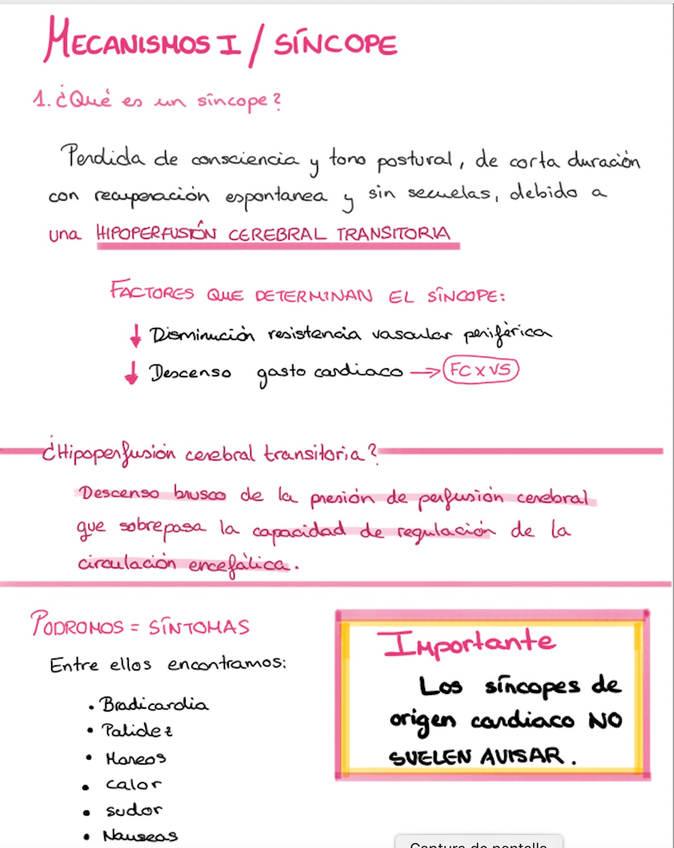 MECANISMOS I / SÍNCOPE
1. ¿Qué es un síncope?
Perdida de consciencia y tono postural, de corta duración
con recuperación espontanea y sin secuelas, debido a
una HIPOPERFUSIÓN CEREBRAL TRANSITORIA
FACTORES QUE DETERMINAN EL SÍNCOPE:
↓ Disminución resistencia vascular periférica
↓ Descenso gasto cardiaco → FC x VS
¿Hipoperfusión cerebral transitoria?
Descenso brusco de la presión de perfusión cerebral
que sobrepasa la capacidad de regulación de la
circulación encefática.
PODROMOS = SÍNTOMAS
Entre ellos encontramos:
• Bradicardia
• Palidez
• Mareos
• calor
• sudor
• Nauseas
Importante
Los síncopes de
origen cardiaco NO
SUELEN AVISAR.